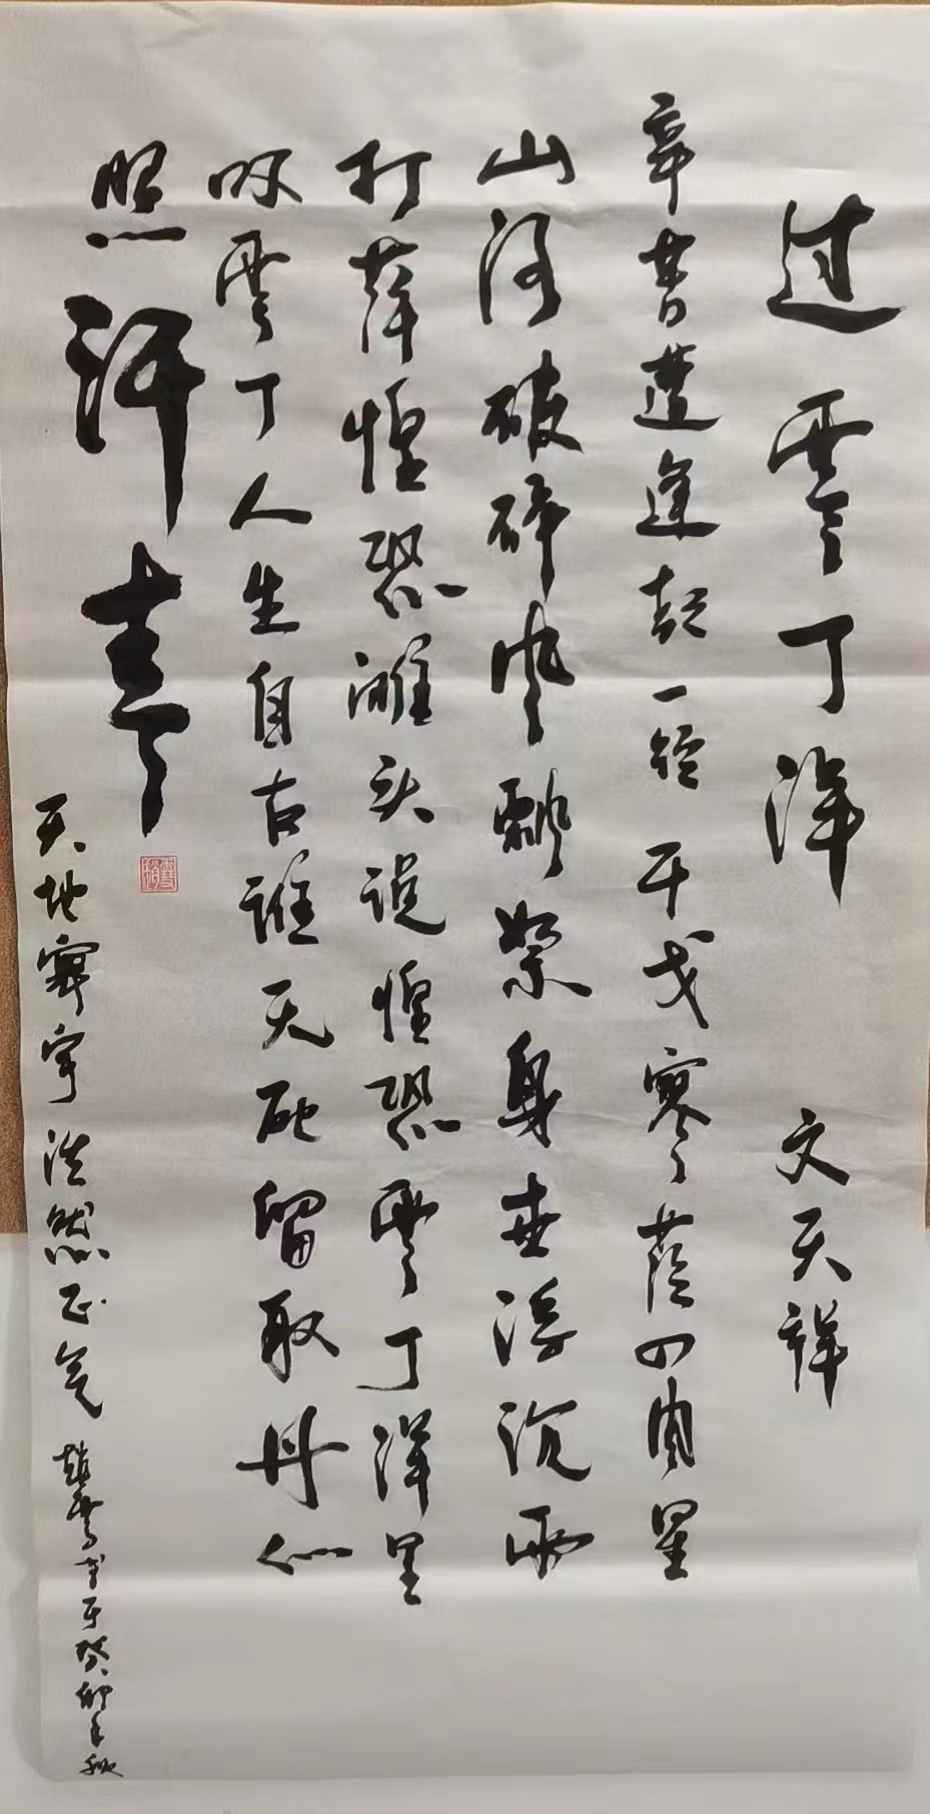 过零丁洋 文天祥
辛苦遭逢起一经干戈寥落四周星
山河破碎风飘絮身世浮沉雨
打萍惶恐滩头说惶恐零丁洋里
叹零丁人生自古谁无死留取丹心
照汗青
天地寰宇浩然正气 赵雪 书于癸卯年秋